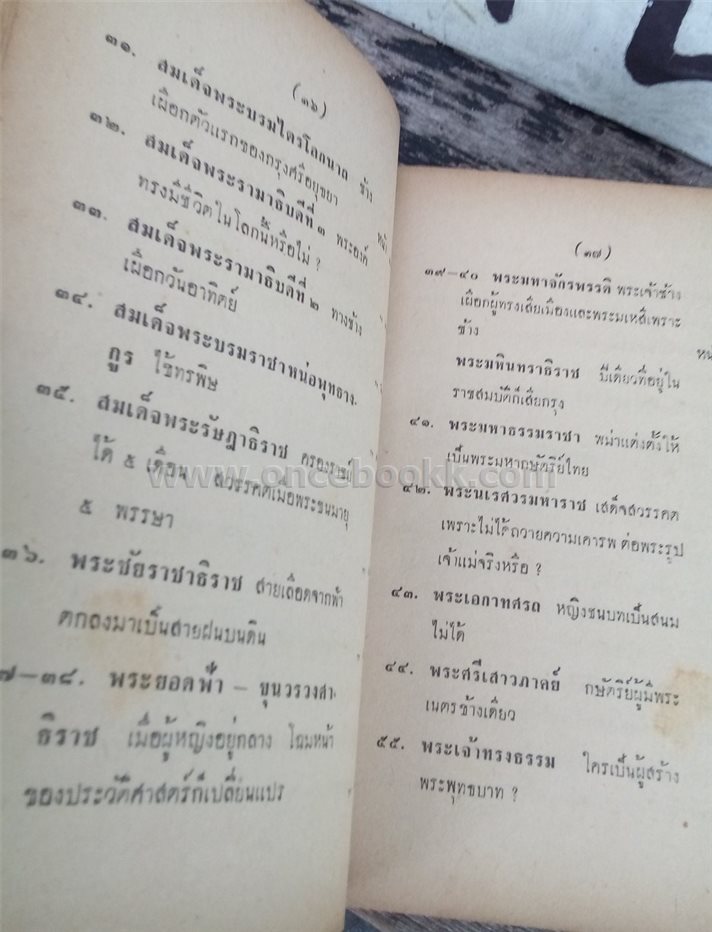 (๓๖)
๓๑. สมเด็จพระบรมไตรโลกนาถ ช้าง
เผือกตัวแรกของกรุงศรีอยุธยา
๓๒. สมเด็จพระรามาธิบดีที่ ๑ พระองค์
ทรงมีชีวิตในโลกนี้หรือไม่ ?
๓๓. สมเด็จพระรามาธิบดีที่ ๒ ทางช้าง
เผือกวันอาทิตย์
๓๔. สมเด็จพระบรมราชาหน่อพุทธาง-
กูร ไข้ทรพิษ
๓๕. สมเด็จพระรัษฎาธิราช ครองราชย์
ได้ ๕ เดือน สวรรคตเมื่อพระชนมายุ
๕ พรรษา
๓๖. พระชัยราชาธิราช สายเลือดจากฟ้า
ตกลงมาเป็นสายฝนบนดิน
๗—๓๘. พระยอดฟ้า — ขุนวรวงสา
ธิราช เมื่อผู้หญิงอยู่กลาง โฉมหน้า
ของประวัติศาสตร์ก็เปลี่ยนแปร
(๓๗)
๓๙—๔๐ พระมหาจักรพรรดิ พระเจ้าช้าง
เผือกผู้ทรงเสียเมืองและพระมเหสีเพราะ
ช้าง
พระมหินทราธิราช ปีเดียวที่อยู่ใน
ราชสมบัติก็เสียกรุง
๔๑. พระมหาธรรมราชา พม่าแต่งตั้งให้
เป็นพระมหากษัตริย์ไทย
๔๒. พระนเรศวรมหาราช เสด็จสวรรคต
เพราะไม่ได้ถวายความเคารพ ต่อพระรูป
เจ้าแม่จริงหรือ ?
๔๓. พระเอกาทศรถ หญิงชนบทเป็นสนม
ไม่ได้
๔๔. พระศรีเสาวภาคย์ กษัตริย์ผู้มีพระ
เนตรข้างเดียว
๔๕. พระเจ้าทรงธรรม ใครเป็นผู้สร้าง
พระพุทธบาท ?
www.oncebookk.com